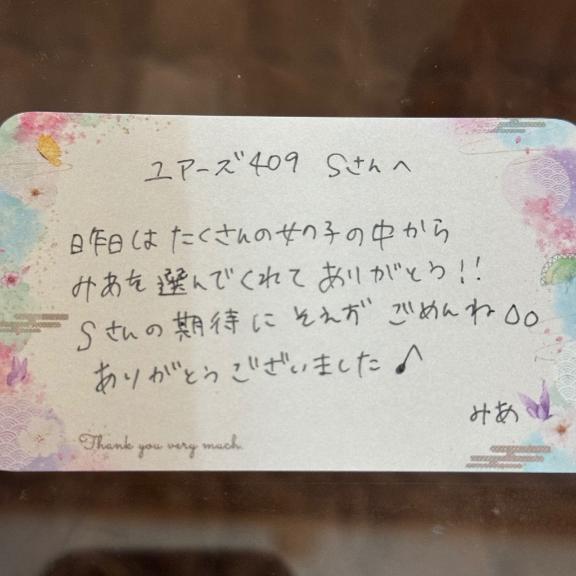 ユアーズ409 Sさんへ
昨日はたくさんの女の子の中から
みあを選んでくれてありがとう!!
Sさんの期待にそえず ごめんね
ありがとうございました♪
みあ
Thank you very much.